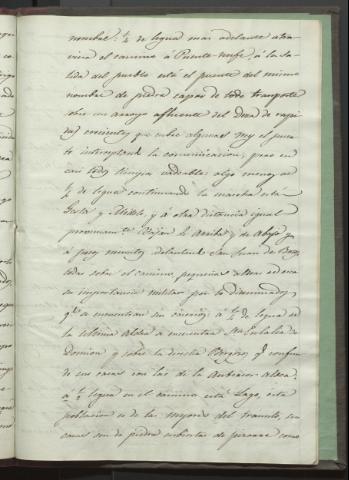 nombre: ¼ de legua mas adelante atra-
viesa el camino á Puente-nufe, á la sa-
lida del pueblo está el puente del mismo
nombre de piedra capaz de todo transporte
sobre un arroyo afluente del Deza de rapi-
das crecientes que cubre algunas vez el puen-
te interceptando la comunicacion, pero en
casi todos tiempos vadeable: algo menos de
¼ de legua continuando la marcha está
Gesta y y á otra distancia igual
proximam.te de Arriba y de Abajo y
á pocos minutos delante San Juan de Boz,
todas sobre el camino, pequeñas aldeas es escasa
su importancia militar por lo diseminadas
q.e se encuentran sus caserios, á ½ de legua de
la ultima aldea se encuentra Sta Eulalia de
Domion y sobre la derecha q.e confun-
de sus casas con las de la Anterior Aldea:
á ½ legua en el camino está Lago, esta
poblacion es de las mejores del transito, sus
casas son de piedra cubiertas de pizarra como